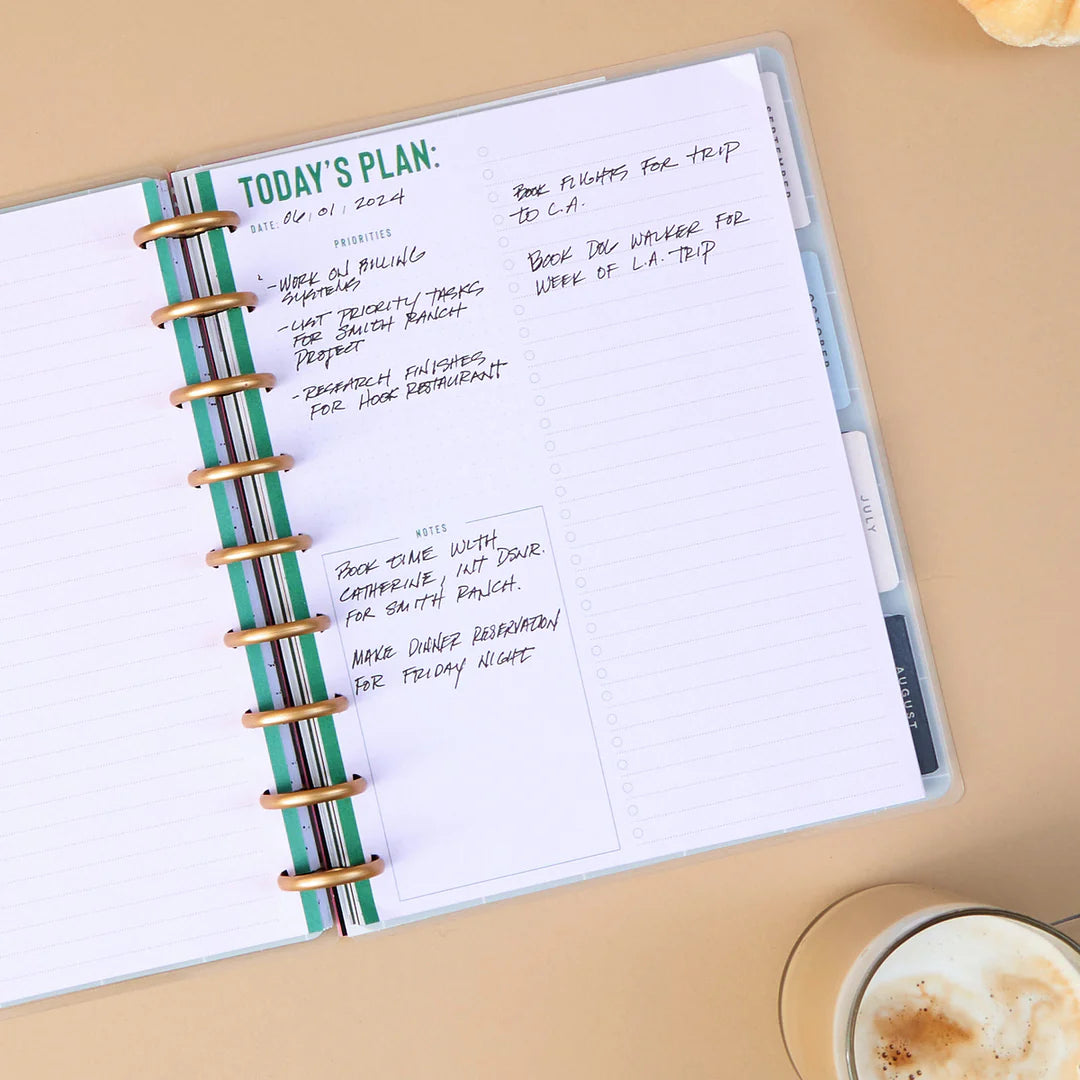 TODAY'S PLAN:
DATE: 06, 01, 2024
PRIORITIES
- WORK ON BILLING
SYSTEMS
- LIST PRIORITY TASKS
FOR SMITH RANCH
PROJECT
- RESEARCH FINISHES
FOR HOOK RESTAURANT
NOTES
BOOK TIME WITH
CATHERINE, INT DSNR.
FOR SMITH RANCH.
MAKE DINNER RESERVATION
FOR FRIDAY NIGHT
BOOK FLIGHTS FOR TRIP
TO L.A.
BOOK DOG WALKER FOR
WEEK OF L.A. TRIP
SEPTEMBER
OCTOBER
JULY
AUGUST